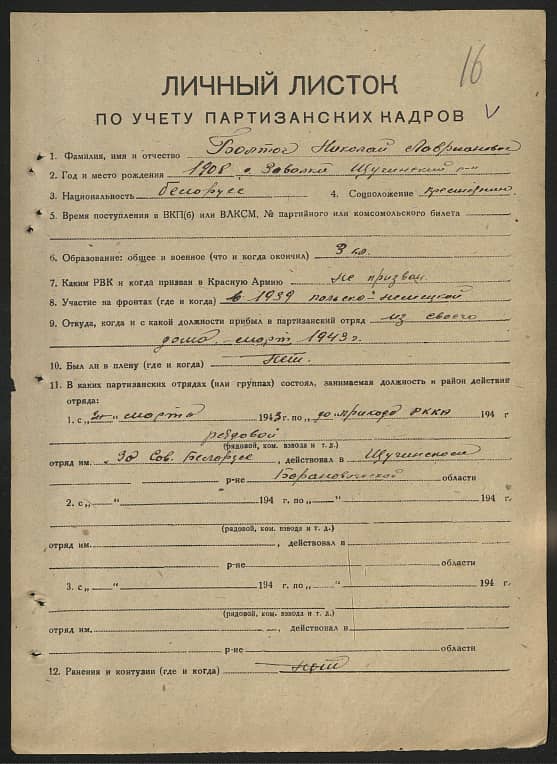 16
ЛИЧНЫЙ ЛИСТОК
ПО УЧЕТУ ПАРТИЗАНСКИХ КАДРОВ V
1. Фамилия, имя и отчество Николай
2. Год и место рождения 1908 д. Заволки Щучинский р-н
3. Национальность белорусс 4. Соцположение крестьянин
5. Время поступления в ВКП(б) или ВЛКСМ, № партийного или комсомольского билета
6. Образование: общее и военное (что и когда окончил) 3 кл.
7. Каким РВК и когда призван в Красную Армию не призван
8. Участие на фронтах (где и когда) в 1939 польско-немецкой
9. Откуда, когда и с какой должности прибыл в партизанский отряд из своего
дома март 1943 г.
10. Был ли в плену (где и когда) нет.
11. В каких партизанских отрядах (или группах) состоял, занимаемая должность и район действия
отряда:
1. с „ “ марта 1943 г. по „до прихода РККА 194 г
рядовой
(рядовой, ком. взвода и т. д.)
отряд им. „За Сов. Белорусс , действовал в Щучинском
р-не Барановичской области
2. с „ “ 194 г. по „ “ 194 г.
(рядовой, ком. взвода и т. д.)
отряд им. , действовал в
р-не области
3. с „ “ 194 г. по „ “ 194 г.
(рядовой, ком. взвода и т. д.)
отряд им. , действовал в
р-не области
12. Ранения и контузии (где и когда) нет